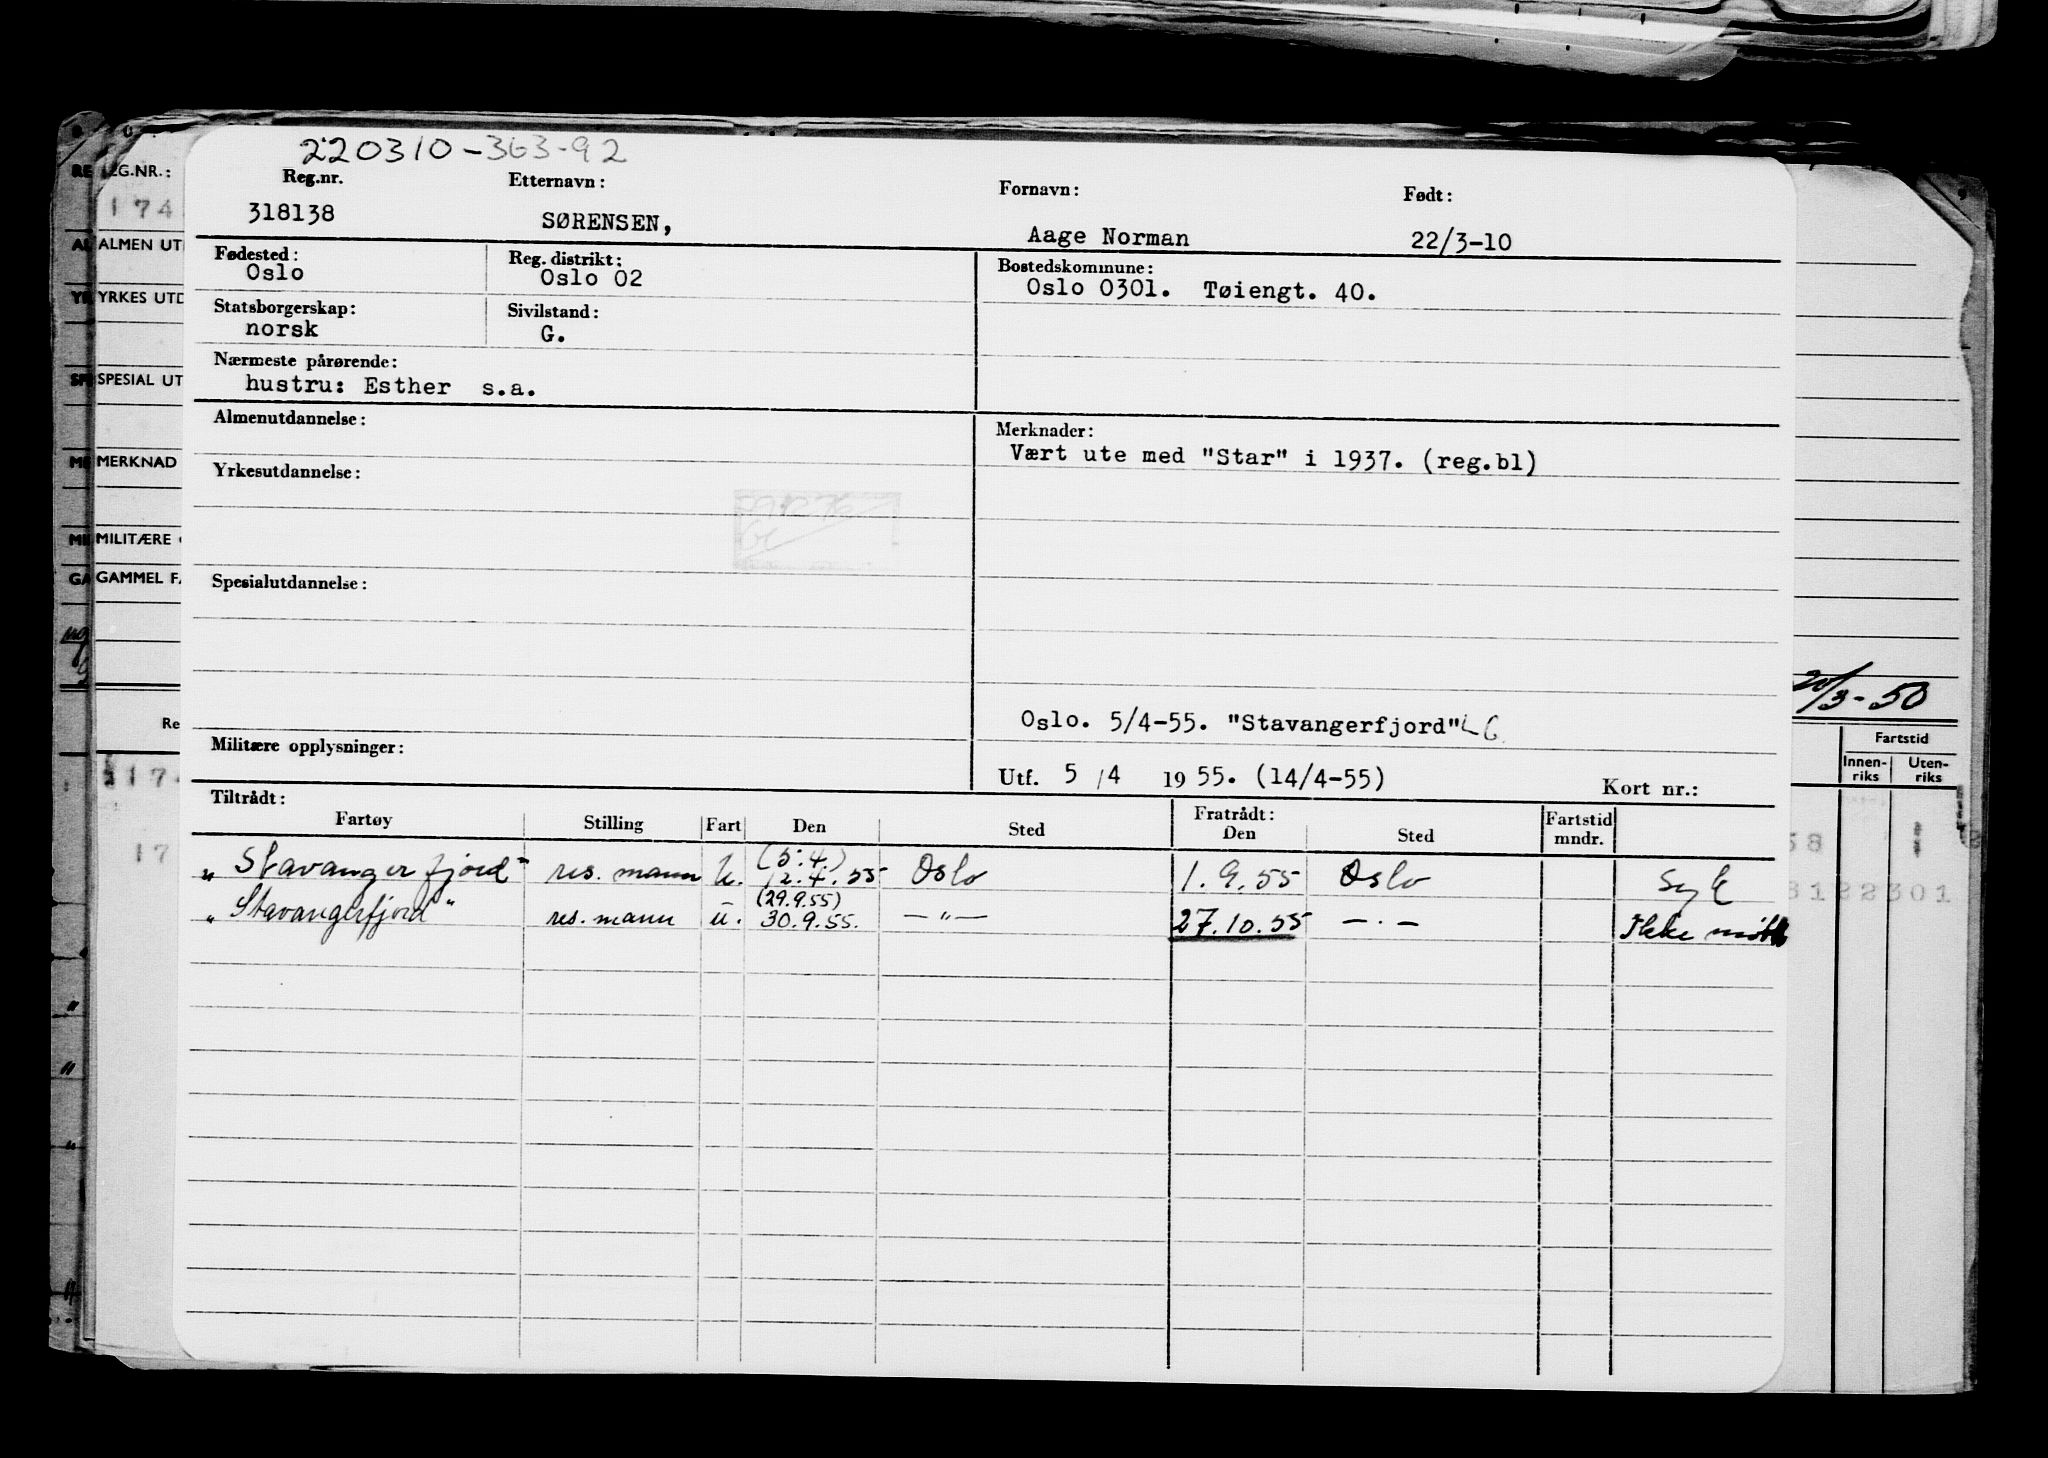 220310-363-92
Reg.nr. Etternavn: Fornavn: Født:
318138 SØRENSEN, Aage Norman 22/3-10
Fødested: Reg. distrikt: Bostedskommune:
Oslo Oslo 02 Oslo 0301. Tøiengt. 40.
Statsborgerskap: Sivilstand:
norsk G.
Nærmeste pårørende:
hustru: Esther s.a.
Almenutdannelse: Merknader:
Vært ute med "Star" i 1937. (reg.bl)
Yrkesutdannelse:
Spesialutdannelse:
Oslo. 5/4-55. "Stavangerfjord"
Militære opplysninger:
Utf. 5/4 1955. (14/4-55) Kort nr.:
Tiltrådt: Fratrådt: Fartstid
Fartøy Stilling Fart Den Sted Den Sted mndr.
(5.4.)
"Stavangerfjord" res. mann U. 12.4.55 Oslo 1.9.55 Oslo Syk
(29.9.55)
"Stavangerfjord" res. mann u. 30.9.55. —"— 27.10.55 —.— Ikke møtt
EG.NR.:
174
ALMEN UT
YRKES UTD
SPESIAL UT
MERKNAD
MILITÆRE
GAMMEL FA
Re
117
17
20/3-50
Fartstid
Innen-riks Uten-riks